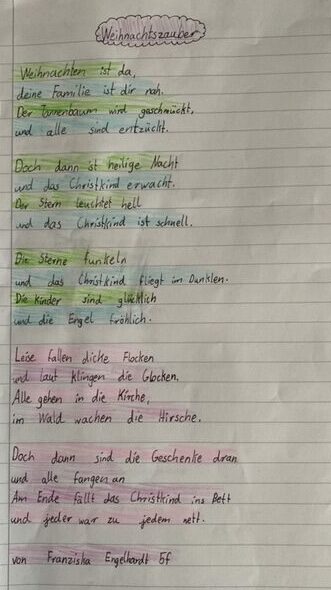 Weihnachtszauber
Weihnachten ist da,
deine Familie ist dir nah.
Der Tannenbaum wird geschmückt,
und alle sind entzückt.
Doch dann ist heilige Nacht
und das Christkind erwacht.
Der Stern leuchtet hell
und das Christkind ist schnell.
Die Sterne funkeln
und das Christkind fliegt im Dunklen.
Die Kinder sind glücklich
und die Engel fröhlich.
Leise fallen dicke Flocken
und laut klingen die Glocken.
Alle gehen in die Kirche,
im Wald wachen die Hirsche.
Doch dann sind die Geschenke dran
und alle fangen an
Am Ende fällt das Christkind ins Bett
und jeder war zu jedem nett.
von Franziska Engelhardt 5f